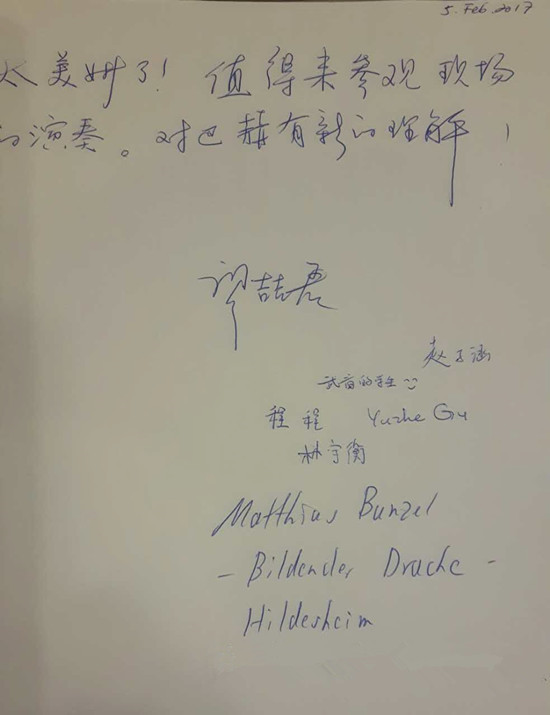 5. Feb. 2017
太美妙了！值得来参观现场
的演奏。对巴赫有新的理解！
廖喆君
赵子涵
武音的学生
程程 Yuzhe Gu
林宇衡
Matthias Bunzel
- Bildender Drache -
Hildesheim